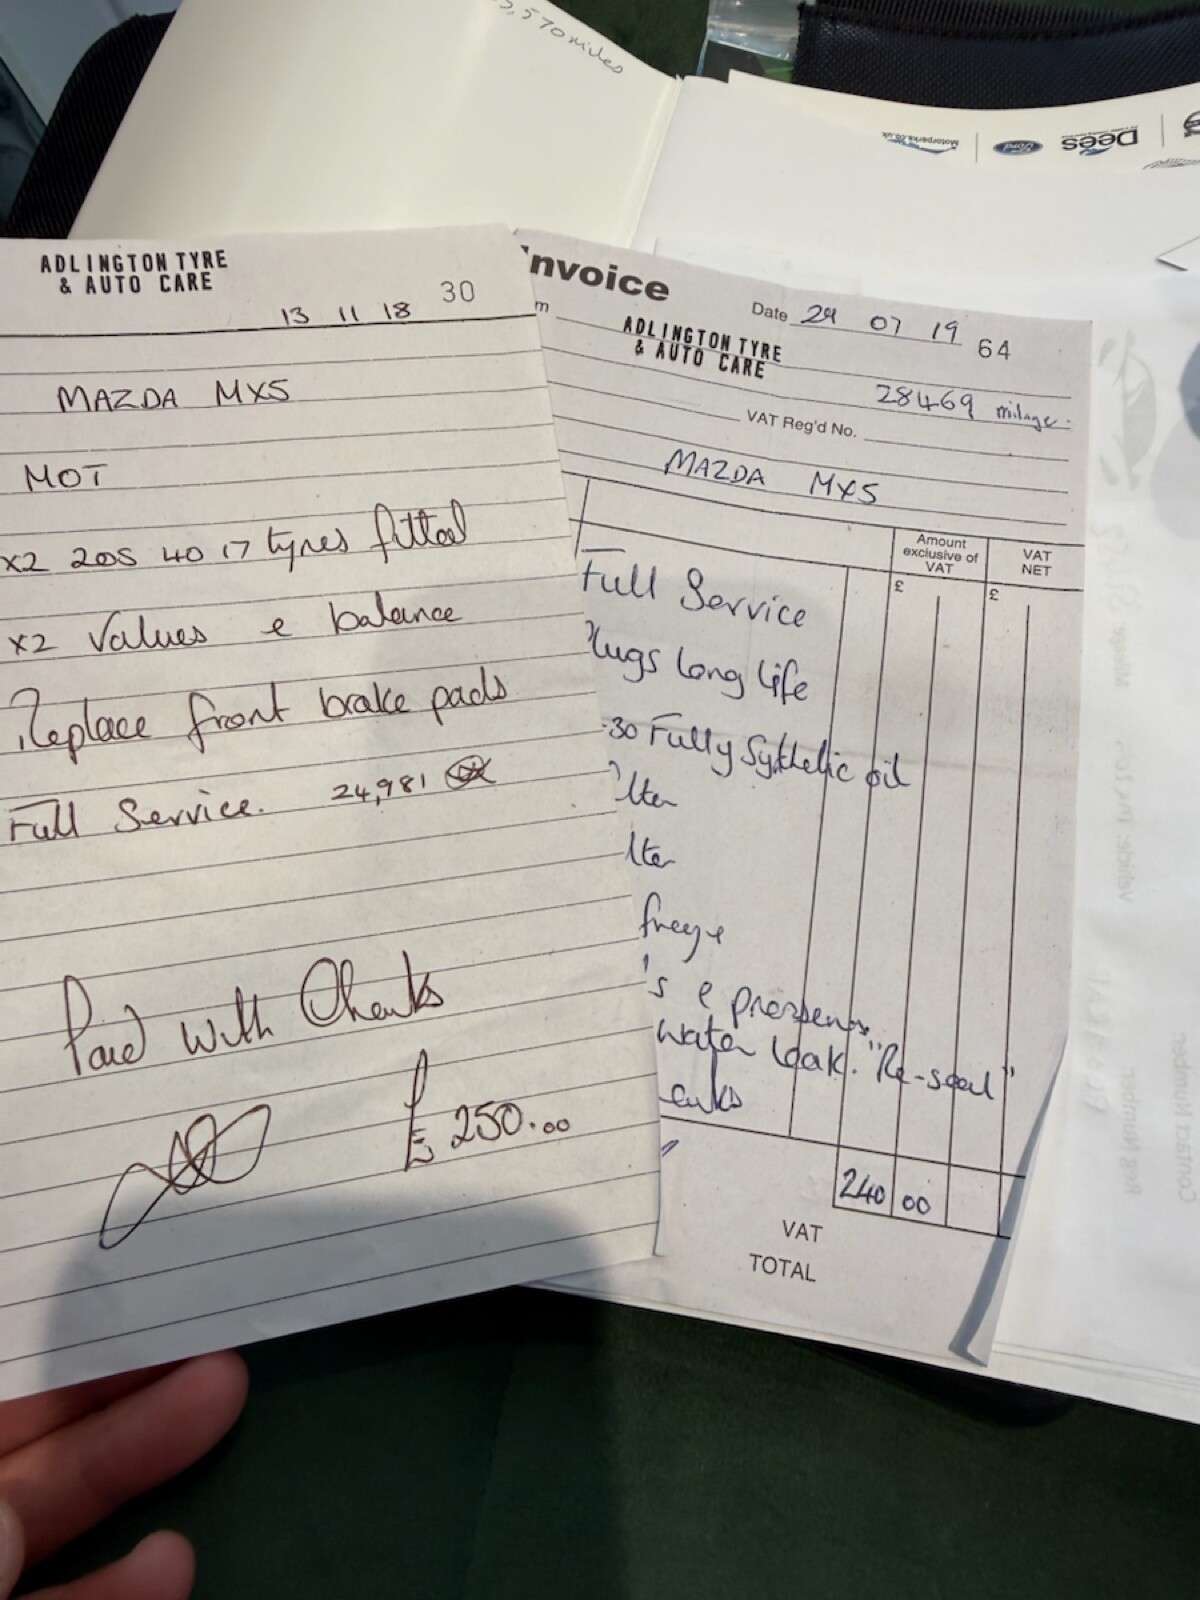 ,570 miles
Motorparks.co.uk
Ford
Dees
ADLINGTON TYRE
& AUTO CARE
13 11 18 30
MAZDA MX5
MOT
x2 205 40 17 tyres fitted
x2 Values e balance
Replace front brake pads
Full Service. 24,981
Paid with Thanks
£250.00
nvoice
Date 29 07 19 64
m
ADLINGTON TYRE
& AUTO CARE
28469 milage.
VAT Reg'd No.
MAZDA MX5
Amount
exclusive of
VAT
VAT
NET
£ £
Full Service
lugs long life
-30 Fully Sythetic oil
lter
lter
freeze
's e pressens
water leak. "Re-seal"
anks
240 00
VAT
TOTAL
Contact Number
Reg Number
Vehicle